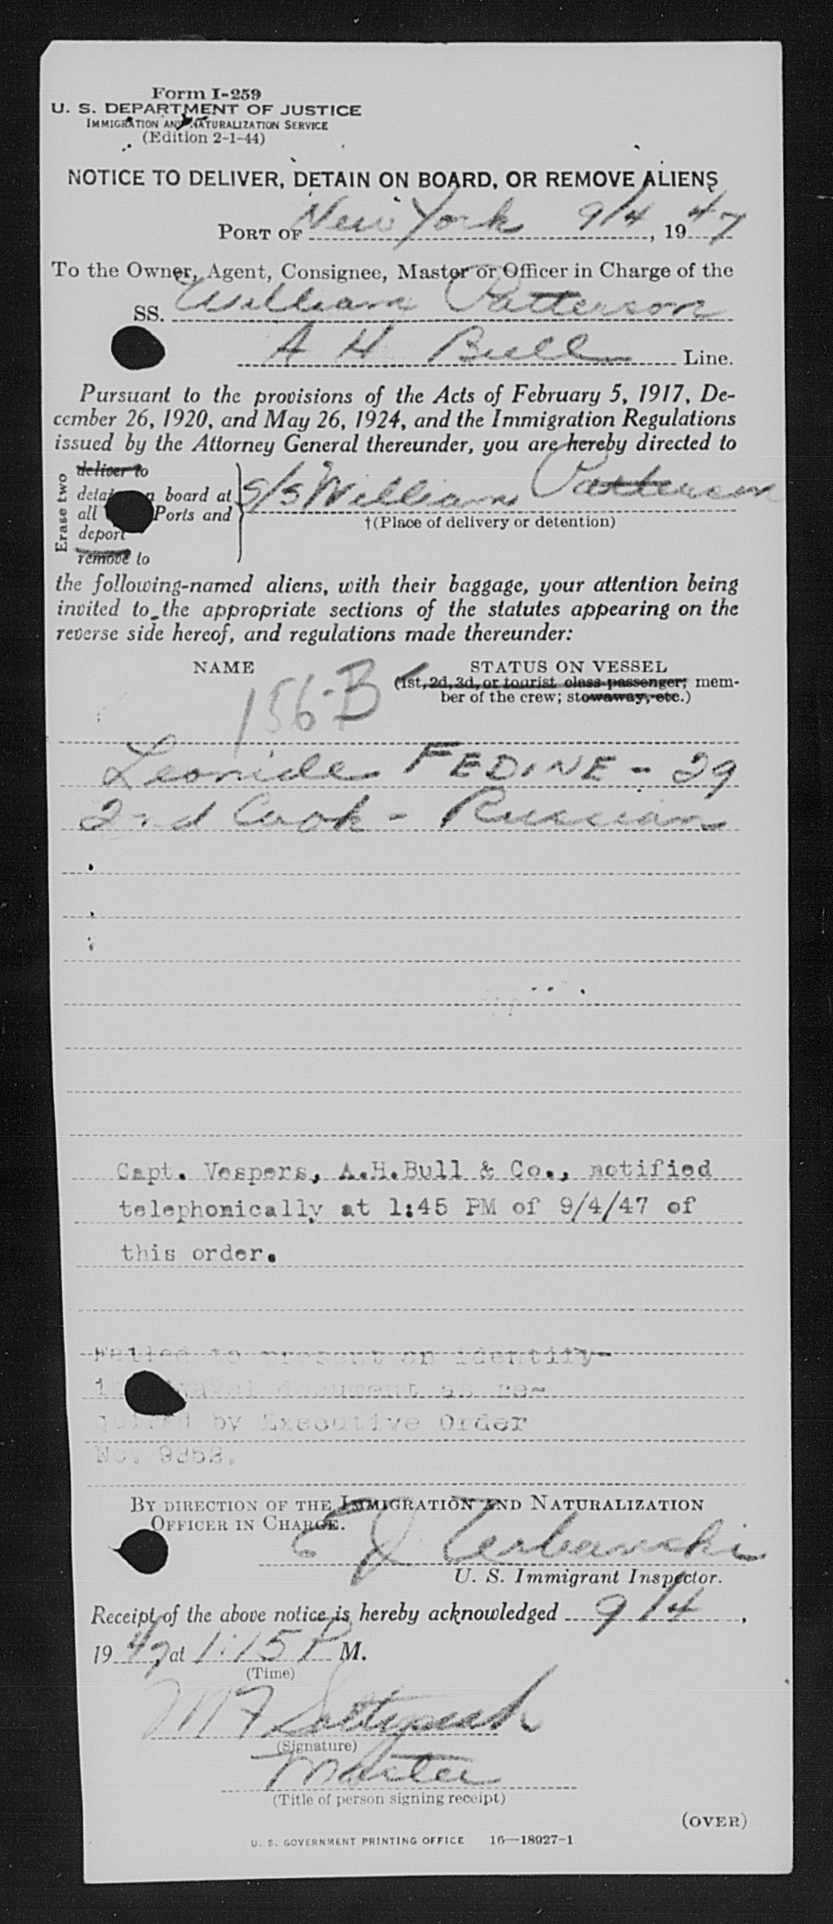 Form I-259
U. S. DEPARTMENT OF JUSTICE
IMMIGRATION AND NATURALIZATION SERVICE
(Edition 2-1-44)
NOTICE TO DELIVER, DETAIN ON BOARD, OR REMOVE ALIENS
PORT OF New York 9/4, 1947
To the Owner, Agent, Consignee, Master or Officer in Charge of the
SS. William Patterson
A H Bull Line.
Pursuant to the provisions of the Acts of February 5, 1917, De-
cember 26, 1920, and May 26, 1924, and the Immigration Regulations
issued by the Attorney General thereunder, you are hereby directed to
Erase two
deliver to
detain on board at
all Ports and
deport
remove to
S/S William Patterson
†(Place of delivery or detention)
the following-named aliens, with their baggage, your attention being
invited to the appropriate sections of the statutes appearing on the
reverse side hereof, and regulations made thereunder:
NAME STATUS ON VESSEL
(1st, 2d, 3d, or tourist class passenger; mem-
ber of the crew; stowaway, etc.)
156-B
Leonide FEDINE - 29
2nd Cook - Russian
Capt. Vespers, A.H.Bull & Co., notified
telephonically at 1:45 PM of 9/4/47 of
this order.
Failed to present an identify-
travel document as re-
quired by Executive Order
No. 9352.
BY DIRECTION OF THE IMMIGRATION AND NATURALIZATION
OFFICER IN CHARGE.
E J Urbanski
U. S. Immigrant Inspector.
Receipt of the above notice is hereby acknowledged 9/4,
1947, at 1:15 P M.
(Time)
M F
(Signature)
Master
(Title of person signing receipt)
(OVER)
U. S. GOVERNMENT PRINTING OFFICE 16—18927-1